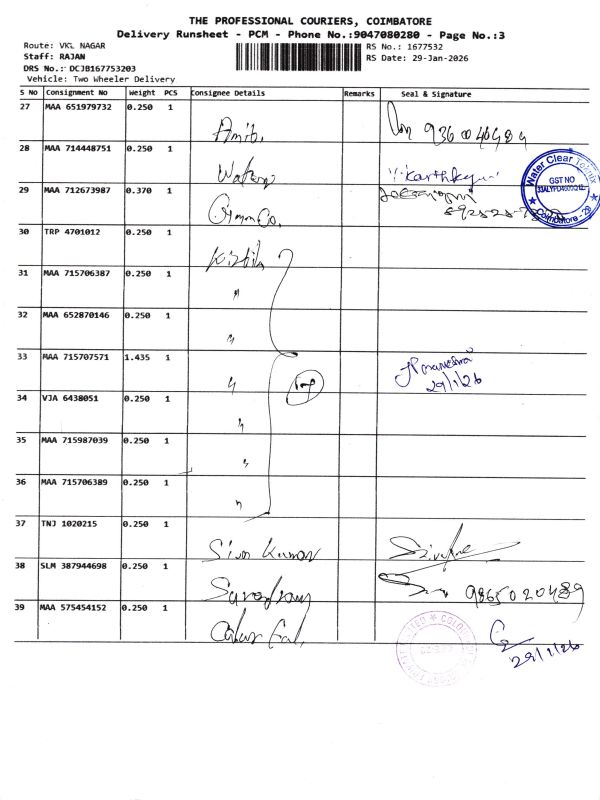 THE PROFESSIONAL COURIERS, COIMBATORE
Delivery Runsheet - PCM - Phone No.:9047080280 - Page No.:3
Route: VKL NAGAR
RS No.: 1677532
Staff: RAJAN
RS Date: 29-Jan-2026
DRS No.: DCJB167753203
Vehicle: Two Wheeler Delivery
S No Consignment No Weight PCS Consignee Details Remarks Seal & Signature
27 MAA 651979732 0.250 1
28 MAA 714448751 0.250 1
Water Clear
GST NO
Coimbatore - 29
29 MAA 712673987 0.370 1
30 TRP 4701012 0.250 1
31 MAA 715706387 0.250 1
"
32 MAA 652870146 0.250 1
"
33 MAA 715707571 1.435 1
"
29/1/26
34 VJA 6438051 0.250 1
"
35 MAA 715987039 0.250 1
"
36 MAA 715706389 0.250 1
"
37 TNJ 1020215 0.250 1 Siva Kumar
38 SLM 387944698 0.250 1 9865020489
39 MAA 575454152 0.250 1
29/1/26